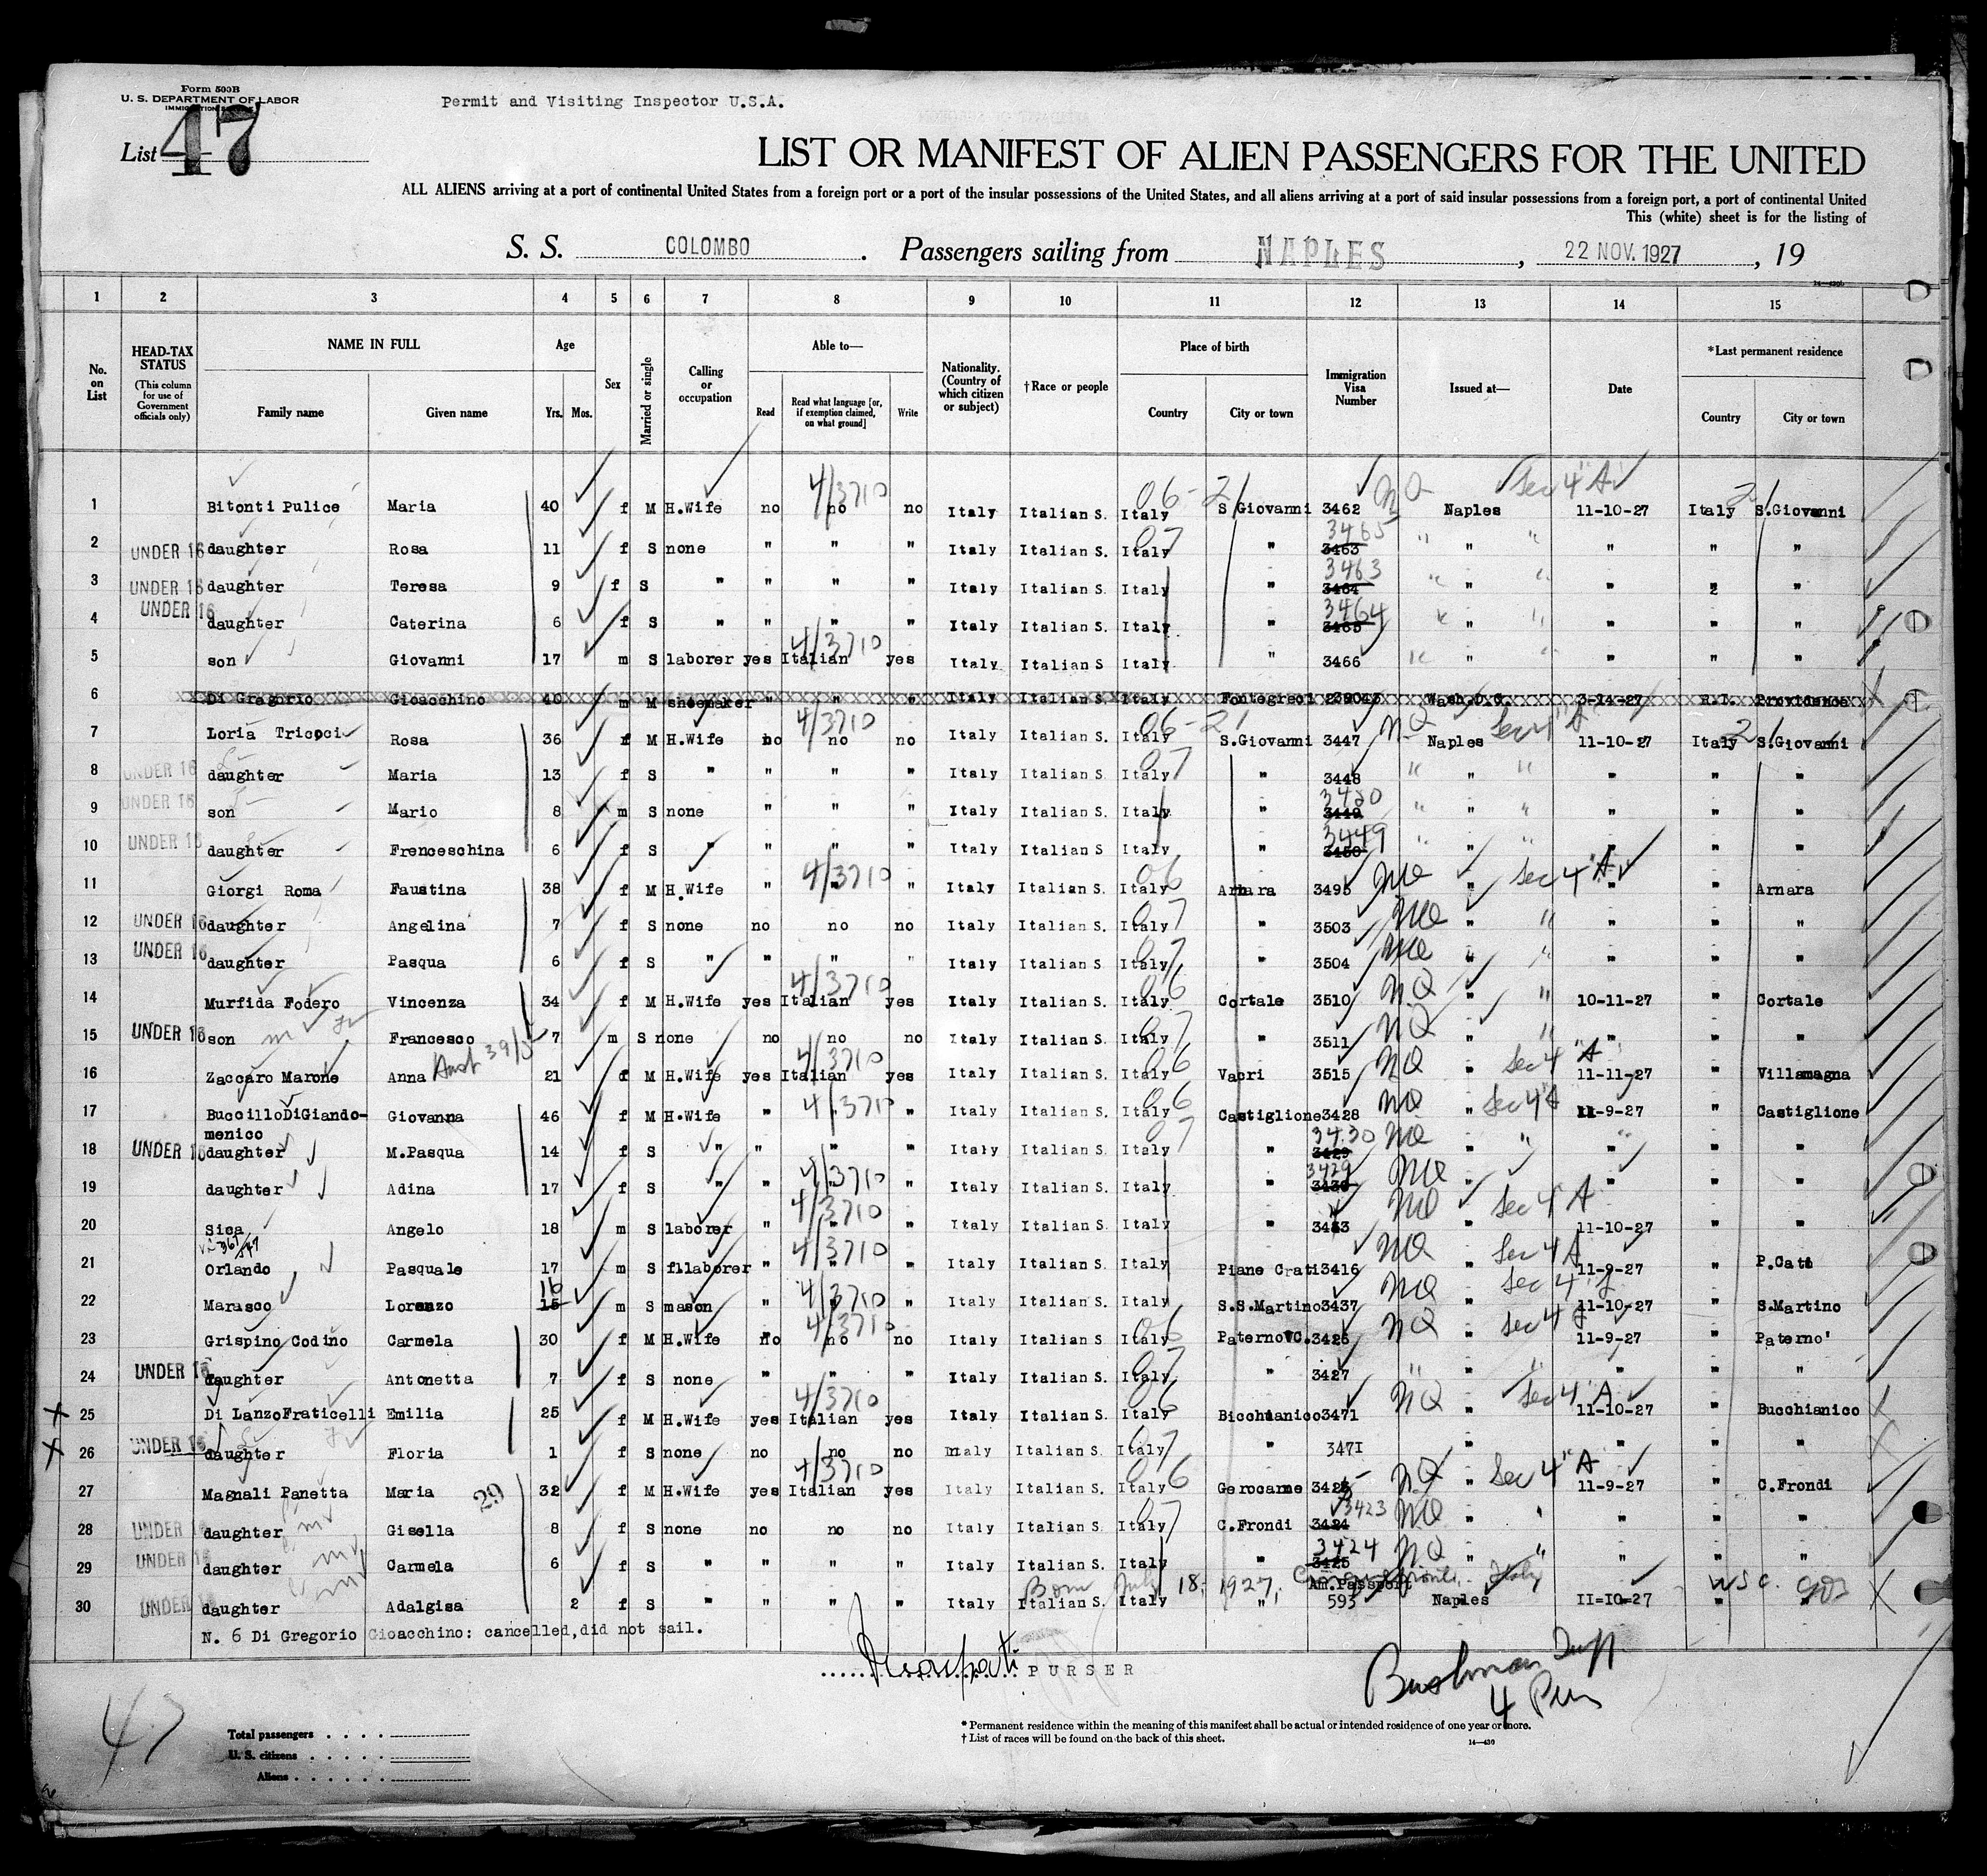 Form 500B
U. S. DEPARTMENT OF LABOR
Permit and Visiting Inspector U.S.A.
List 47
LIST OR MANIFEST OF ALIEN PASSENGERS FOR THE UNITED
ALL ALIENS arriving at a port of continental United States from a foreign port or a port of the insular possessions of the United States, and all aliens arriving at a port of said insular possessions from a foreign port, a port of continental United
This (white) sheet is for the listing of
S. S. COLOMBO. Passengers sailing from NAPLES, 22 NOV. 1927, 19
1 2 3 4 5 6 7 8 9 10 11 12 13 14 15
No. on List
HEAD-TAX STATUS (This column for use of Government officials only)
NAME IN FULL
Family name Given name
Age
Yrs. Mos.
Sex
Married or single
Calling or occupation
Able to—
Read
Read what language [or, if exemption claimed, on what ground]
Write
Nationality. (Country of which citizen or subject)
†Race or people
Place of birth
Country City or town
Immigration Visa Number
Issued at—
Date
*Last permanent residence
Country City or town
1 Bitonti Pulice Maria 40 f M H.Wife no 4/3710 no no Italy Italian S. Italy 06-21 S Giovanni 3462 NQ Naples Sec 4 "A" 11-10-27 Italy 21 S.Giovanni
2 UNDER 16 daughter Rosa 11 f S none " " " Italy Italian S. Italy 07 " 3463 3465 " " " "
3 UNDER 16 daughter Teresa 9 f S " " " " Italy Italian S. Italy " 3464 3463 " " 2 "
4 UNDER 16 daughter Caterina 6 f S " " " " Italy Italian S. Italy " 3465 3464 " " " "
5 son Giovanni 17 m S laborer yes Italian 4/3710 yes Italy Italian S. Italy " 3466 " " " "
6 Di Gregorio Gioacchino 40 m M shoemaker " " " Italy Italian S. Italy Wash.D.C. 3-14-27 R.I. Providence
7 Loria Tricoci Rosa 36 f M H.Wife no 4/3710 no no Italy Italian S. Italy 06-21 S.Giovanni 3447 NQ Naples Sec 4 "A" 11-10-27 Italy 21 S.Giovanni
8 UNDER 16 daughter Maria 13 f S " " " " Italy Italian S. Italy 07 " 3448 " " " "
9 UNDER 16 son Mario 8 m S none " " " Italy Italian S. Italy " 3449 3450 " " " "
10 UNDER 16 daughter Frenceschina 6 f S " " " " Italy Italian S Italy " 3450 3449 " " " "
11 Giorgi Roma Faustina 38 f M H.Wife " 4/3710 " " Italy Italian S. Italy 06 Arnara 3495 NQ " Sec 4 "A" " " Arnara
12 UNDER 16 daughter Angelina 7 f S none no no no Italy Italian S. Italy 07 " 3503 NQ " " " "
13 UNDER 16 daughter Pasqua 6 f S " " " " Italy Italian S. Italy 07 " 3504 NQ " " " "
14 Murfida Fodero Vincenza 34 f M H.Wife yes Italian 4/3710 yes Italy Italian S. Italy 06 Cortale 3510 NQ " " 10-11-27 " Cortale
15 UNDER 16 son Francesco 7 m S none no no no Italy Italian S. Italy 07 " 3511 NQ " " " "
16 Zaccaro Marone Anna 21 f M H.Wife yes Italian 4/3710 yes Italy Italian S. Italy 06 Vacri 3515 NQ " Sec 4 "A" 11-11-27 " Villamagna
17 BuccilloDiGiando- Giovanna 46 f M H.Wife " 4/3710 " Italy Italian S. Italy 06 Castiglione 3428 NQ " Sec 4 "A" 11-9-27 " Castiglione
menico
18 UNDER 16 daughter M.Pasqua 14 f S " " " " Italy Italian S. Italy 07 " 3429 3430 NQ " " " " "
19 daughter Adina 17 f S " " 4/3710 " " Italy Italian S. Italy " 3430 3429 NQ " " " "
20 Sica Angelo 18 m S laborer " 4/3710 " " Italy Italian S. Italy " 3433 NQ " Sec 4 A 11-10-27 " "
21 Orlando Pasquale 17 m S f.laborer " 4/3710 " " Italy Italian S. Italy Piane Crati 3416 NQ " Sec 4 A 11-9-27 " P.Cati
22 Marasco Lorenzo 15 16 m S mason " 4/3710 " " Italy Italian S. Italy S.S.Martino 3437 NQ " Sec 4 11-10-27 " S.Martino
23 Grispino Codino Carmela 30 f M H.Wife no 4/3710 no no Italy Italian S. Italy 06 Paterno C. 3426 NQ " Sec 4 11-9-27 " Paterno'
24 UNDER 16 daughter Antonetta 7 f S none " " " Italy Italian S. Italy 07 " 3427 " " " " "
25 Di LanzoFraticelli Emilia 25 f M H.Wife yes Italian 4/3710 yes Italy Italian S. Italy 06 Bicchianico 3471 NQ " Sec 4 "A" 11-10-27 " Bucchianico
26 UNDER 16 daughter Floria 1 f S none no no no Italy Italian S. Italy 07 " 3471 " " " "
27 Magnali Panetta Maria 29 32 f M H.Wife yes Italian 4/3710 yes Italy Italian S. Italy 06 Gerocarne NQ " Sec 4 "A" 11-9-27 " C.Frondi
28 UNDER 16 daughter Gisella 8 f S none no no no Italy Italian S. Italy 07 C.Frondi 3424 3423 NQ " " " " "
29 UNDER 16 daughter Carmela 6 f S " " " " Italy Italian S. Italy " 3425 3424 NQ " " " " "
Born July 18, 1927, Italy
Am.Passport
30 UNDER 16 daughter Adalgisa 2 f S " " " " Italy Italian S. Italy " 593 Naples II=IO=27 " "
N. 6 Di Gregorio Gioacchino: cancelled,did not sail.
PURSER
4 Pm
47
Total passengers
U. S. citizens
Aliens
* Permanent residence within the meaning of this manifest shall be actual or intended residence of one year or more.
† List of races will be found on the back of this sheet.
14—430